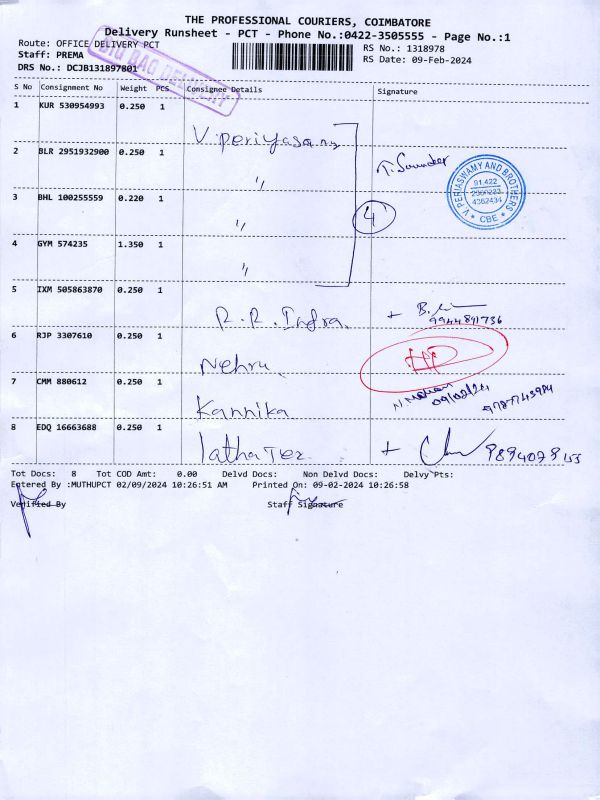 THE PROFESSIONAL COURIERS, COIMBATORE
Delivery Runsheet - PCT - Phone No.:0422-3505555 - Page No.:1
Route: OFFICE DELIVERY PCT
RS No.: 1318978
Staff: PREMA
RS Date: 09-Feb-2024
DRS No.: DCJB131897801
BIG BAG DELIVERY
S No Consignment No Weight PCS Consignee Details Signature
1 KUR 530954993 0.250 1 V. periyasamy
2 BLR 2951932900 0.250 1 〃 T. Sounder
V PERIASWAMY AND BROTHERS
CBE
4362434
3 BHL 100255559 0.220 1 〃 4
4 GYM 574235 1.350 1 〃
5 IXM 505863870 0.250 1 R. R. Infra.
9944891736
6 RJP 3307610 0.250 1 Nehru.
7 CMM 880612 0.250 1 Kannika 09/02/24
8 EDQ 16663688 0.250 1 latha Tex. 9894098153
Tot Docs: 8 Tot COD Amt: 0.00 Delvd Docs: Non Delvd Docs: Delvy Pts:
Entered By :MUTHUPCT 02/09/2024 10:26:51 AM Printed On: 09-02-2024 10:26:58
Verified By Staff Signature